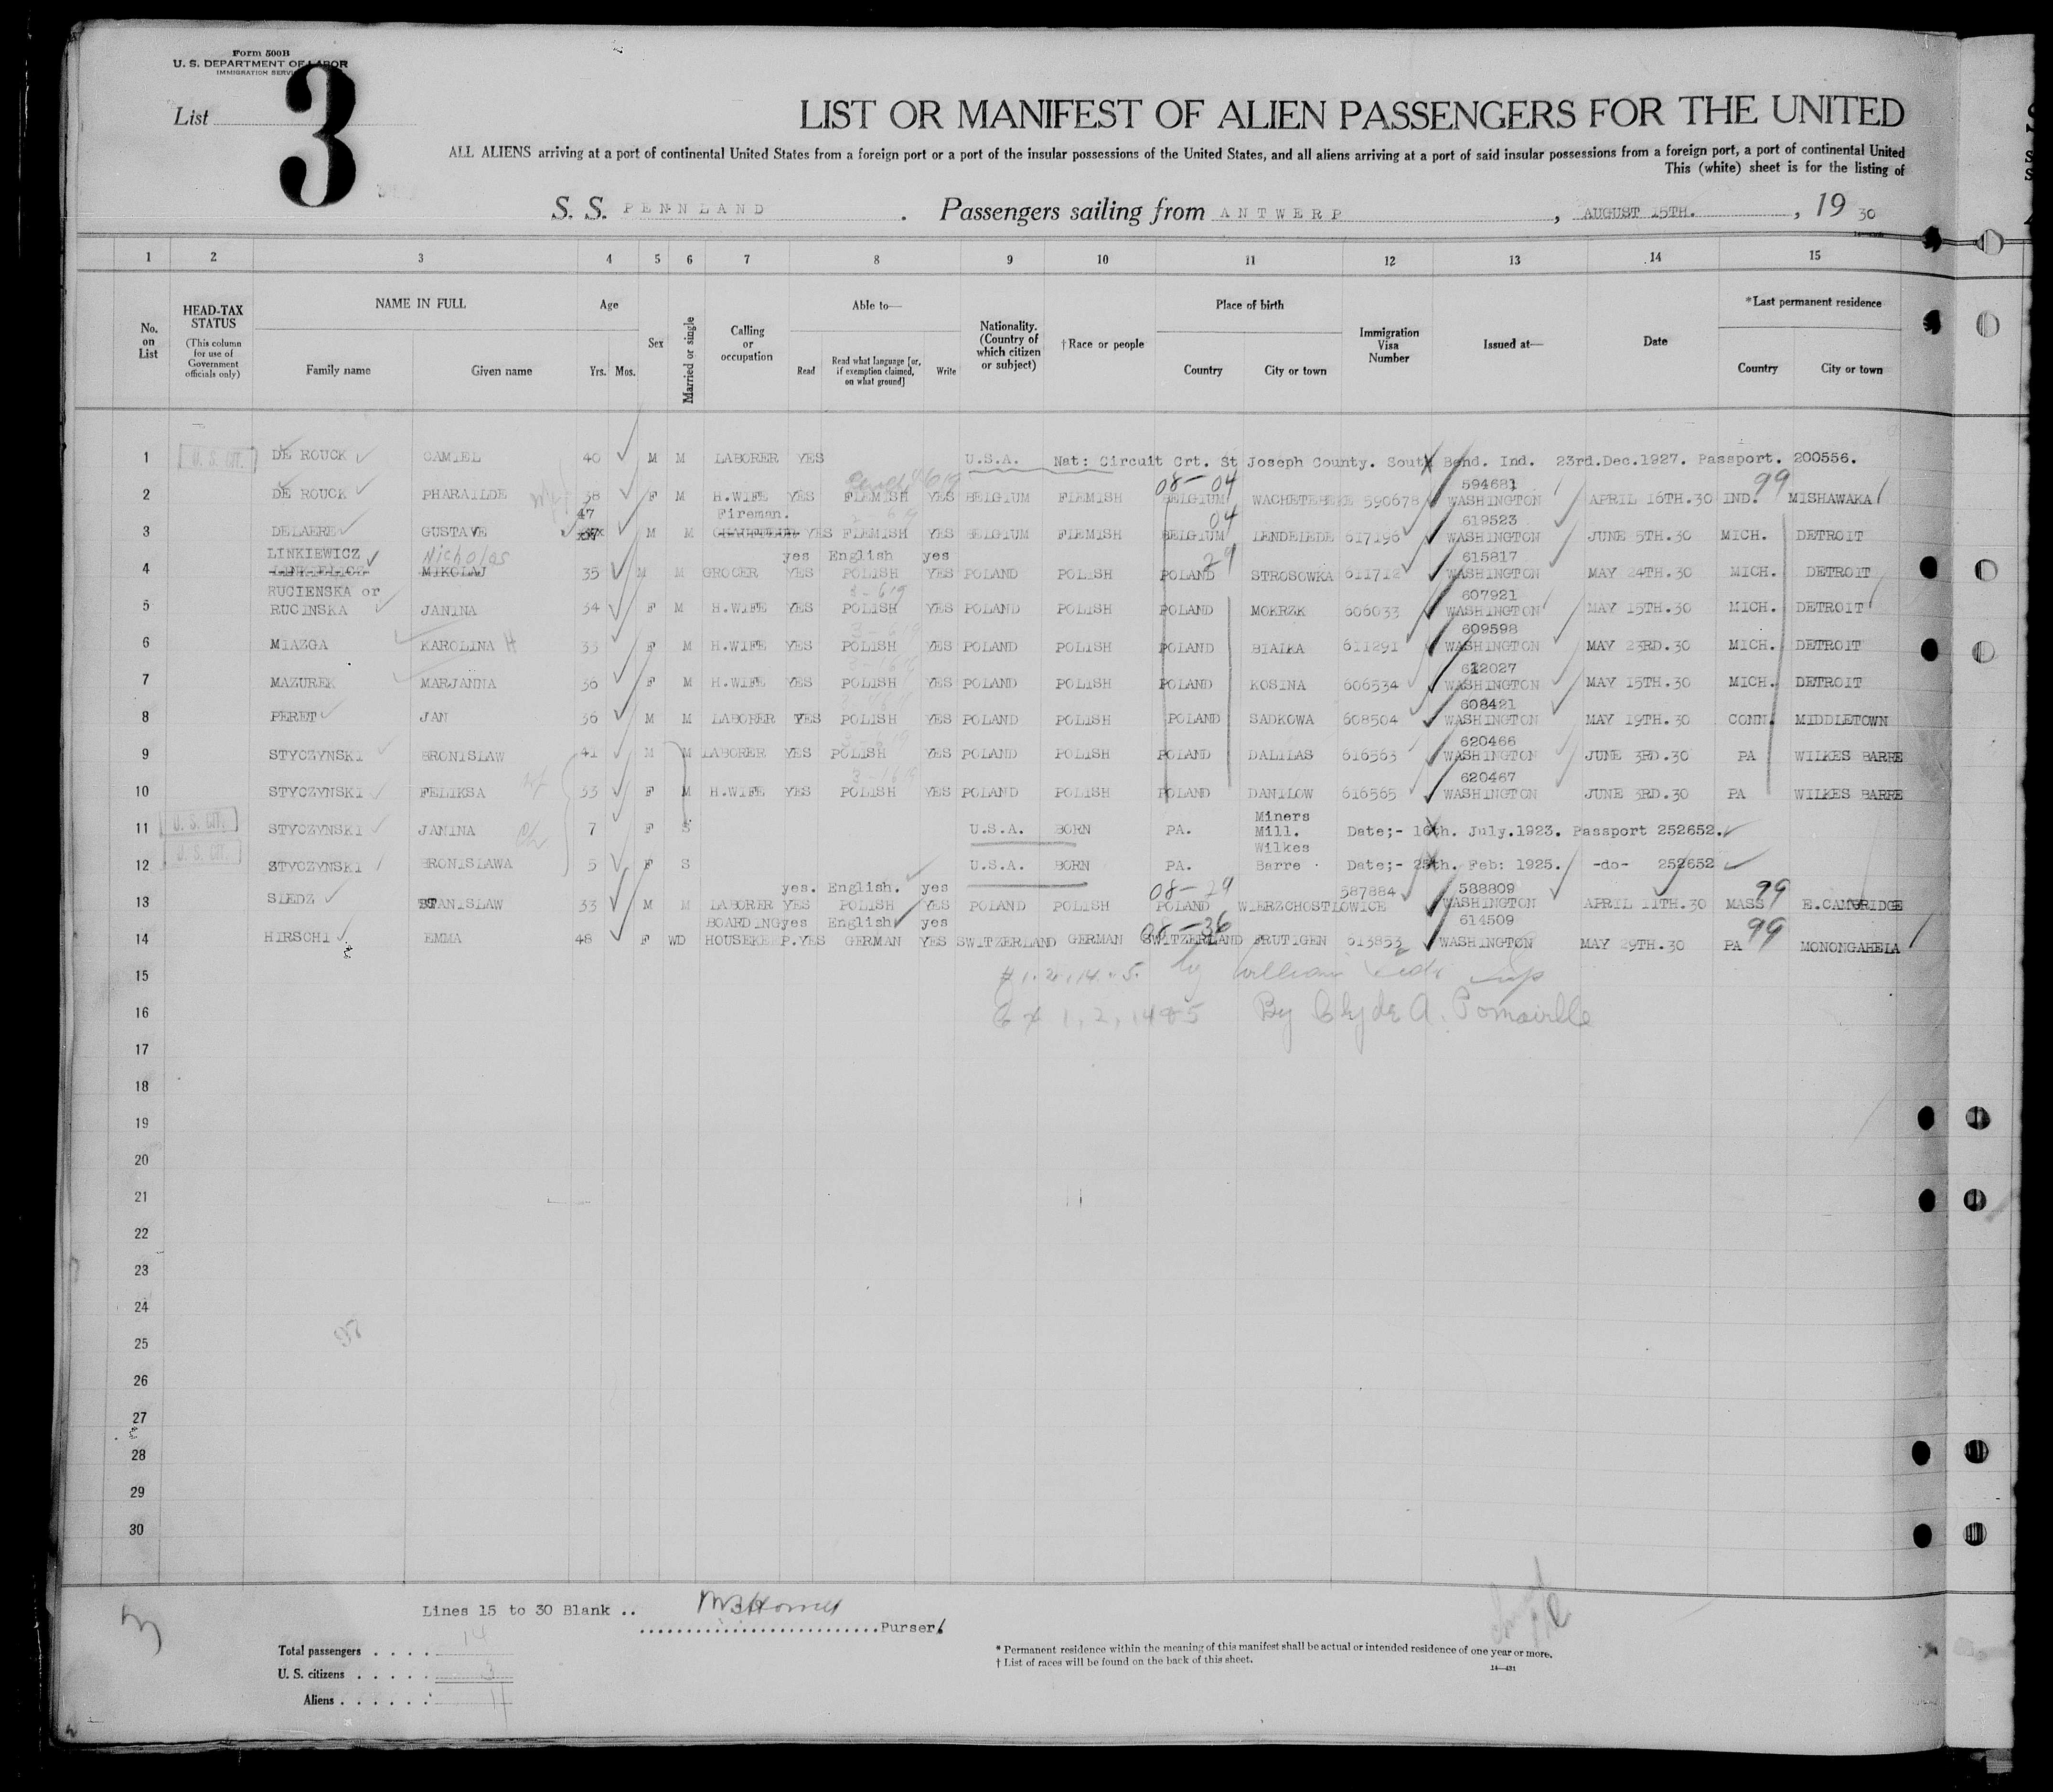 Form 500B
U. S. DEPARTMENT OF LABOR
IMMIGRATION SERVICE
List 3
LIST OR MANIFEST OF ALIEN PASSENGERS FOR THE UNITED
ALL ALIENS arriving at a port of continental United States from a foreign port or a port of the insular possessions of the United States, and all aliens arriving at a port of said insular possessions from a foreign port, a port of continental United
This (white) sheet is for the listing of
S. S. PENNLAND . Passengers sailing from ANTWERP , AUGUST 15TH. , 19 30
1 2 3 4 5 6 7 8 9 10 11 12 13 14 15
No. on List
HEAD-TAX STATUS
(This column for use of Government officials only)
NAME IN FULL
Family name
Given name
Age
Yrs.
Mos.
Sex
Married or single
Calling or occupation
Able to—
Read
Read what language [or, if exemption claimed, on what ground]
Write
Nationality. (Country of which citizen or subject)
†Race or people
Place of birth
Country
City or town
Immigration Visa Number
Issued at—
Date
*Last permanent residence
Country
City or town
1 U. S. CIT. DE ROUCK CAMIEL 40 M M LABORER YES U.S.A. Nat: Circuit Crt. St Joseph County. South Bend. Ind. 23rd.Dec.1927. Passport. 200556.
08-04 594681 99
2 DE ROUCK PHARAILDE 38 F M H.WIFE YES FLEMISH YES BELGIUM FLEMISH BELGIUM WACHTEBEKE 590678 WASHINGTON APRIL 16TH.30 IND. MISHAWAKA
47 Fireman. 04 619523
3 DELAERE GUSTAVE 37 M M CHAUFFEUR YES FLEMISH YES BELGIUM FLEMISH BELGIUM LENDELEDE 617196 WASHINGTON JUNE 5TH.30 MICH. DETROIT
LINKIEWICZ Nicholas yes English yes 29 615817
4 MIKOLAJ 35 M M GROCER YES POLISH YES POLAND POLISH POLAND STROSOWKA 611712 WASHINGTON MAY 24TH.30 MICH. DETROIT
RUCIENSKA or 607921
5 RUCINSKA JANINA 34 F M H.WIFE YES POLISH YES POLAND POLISH POLAND MOKRZK 606033 WASHINGTON MAY 15TH.30 MICH. DETROIT
609598
6 MIAZGA KAROLINA 33 F M H.WIFE YES POLISH YES POLAND POLISH POLAND BIALKA 611291 WASHINGTON MAY 23RD.30 MICH. DETROIT
612027
7 MAZUREK MARJANNA 36 F M H.WIFE YES POLISH YES POLAND POLISH POLAND KOSINA 606534 WASHINGTON MAY 15TH.30 MICH. DETROIT
608421
8 PERET JAN 36 M M LABORER YES POLISH YES POLAND POLISH POLAND SADKOWA 608504 WASHINGTON MAY 19TH.30 CONN. MIDDLETOWN
620466
9 STYCZYNSKI BRONISLAW 41 M M LABORER YES POLISH YES POLAND POLISH POLAND DALILAS 616563 WASHINGTON JUNE 3RD.30 PA WILKES BARRE
620467
10 STYCZYNSKI FELIKSA 33 F M H.WIFE YES POLISH YES POLAND POLISH POLAND DANILOW 616565 WASHINGTON JUNE 3RD.30 PA WILKES BARRE
11 U. S. CIT. STYCZYNSKI JANINA 7 F S U.S.A. BORN PA. Miners Mill. Date;- 16th. July.1923. Passport 252652.
12 U. S. CIT. STYCZYNSKI BRONISLAWA 5 F S U.S.A. BORN PA. Wilkes Barre Date;- 25th. Feb: 1925. -do- 252652
yes. English. yes 08-29 587884 588809 99
13 SLEDZ STANISLAW 33 M M LABORER YES POLISH YES POLAND POLISH POLAND WIERZCHOSTLOWICE WASHINGTON APRIL 11TH.30 MASS E.CAMBRIDGE
BOARDING yes English yes 08-36 614509 99
14 HIRSCHI EMMA 48 F WD HOUSEKEEP. YES GERMAN YES SWITZERLAND GERMAN SWITZERLAND FRUTIGEN 613853 WASHINGTON MAY 29TH.30 PA MONONGAHELA
15
16 By Clyde A.
17
18
19
20
21
22
23
24
25
26
27
28
29
30
Lines 15 to 30 Blank ..
Purser.
Total passengers . . . . 14
U. S. citizens . . . . . 3
Aliens . . . . . . 11
* Permanent residence within the meaning of this manifest shall be actual or intended residence of one year or more.
† List of races will be found on the back of this sheet.
14—431